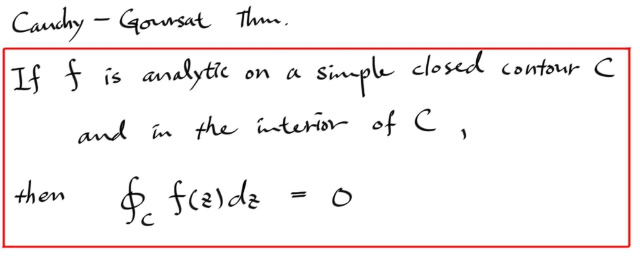 Cauchy - Goursat Thm.
If f is analytic on a simple closed contour C
and in the interior of C ,
then ∮_C f(z)dz = 0